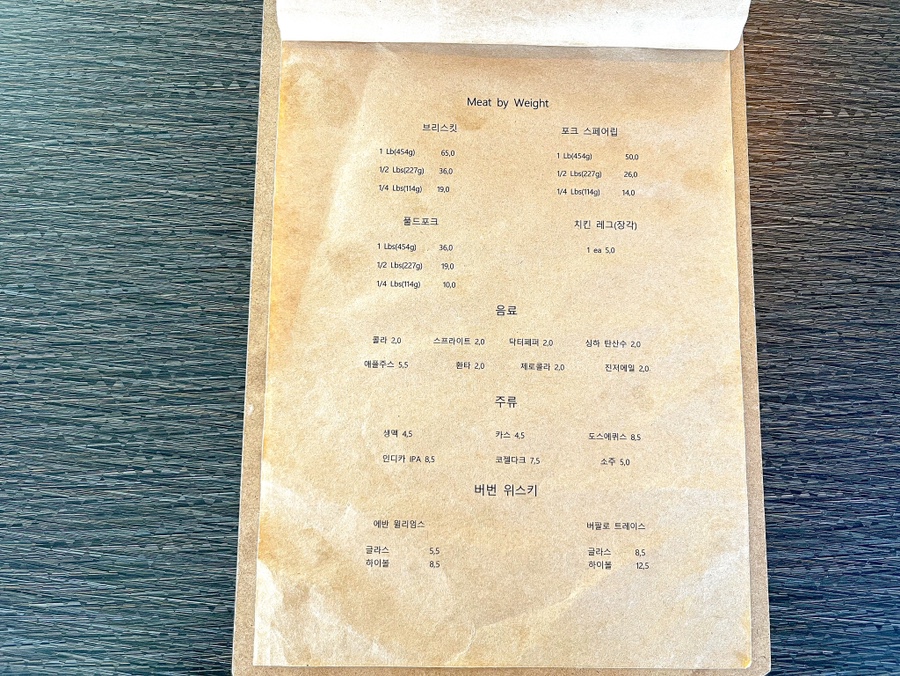 Meat by Weight
브리스킷
1 Lb(454g) 65,0
1/2 Lbs(227g) 36,0
1/4 Lbs(114g) 19,0
포크 스페어립
1 Lb(454g) 50,0
1/2 Lbs(227g) 26,0
1/4 Lbs(114g) 14,0
풀드포크
1 Lbs(454g) 36,0
1/2 Lbs(227g) 19,0
1/4 Lbs(114g) 10,0
치킨 레그(장각)
1 ea 5,0
음료
콜라 2,0 스프라이트 2,0 닥터페퍼 2,0 심하 탄산수 2,0
애플주스 5,5 환타 2,0 제로콜라 2,0 진저에일 2,0
주류
생맥 4,5 카스 4,5 도스에퀴스 8,5
인디카 IPA 8,5 코젤다크 7,5 소주 5,0
버번 위스키
에반 윌리엄스
글라스 5,5
하이볼 8,5
버팔로 트레이스
글라스 8,5
하이볼 12,5